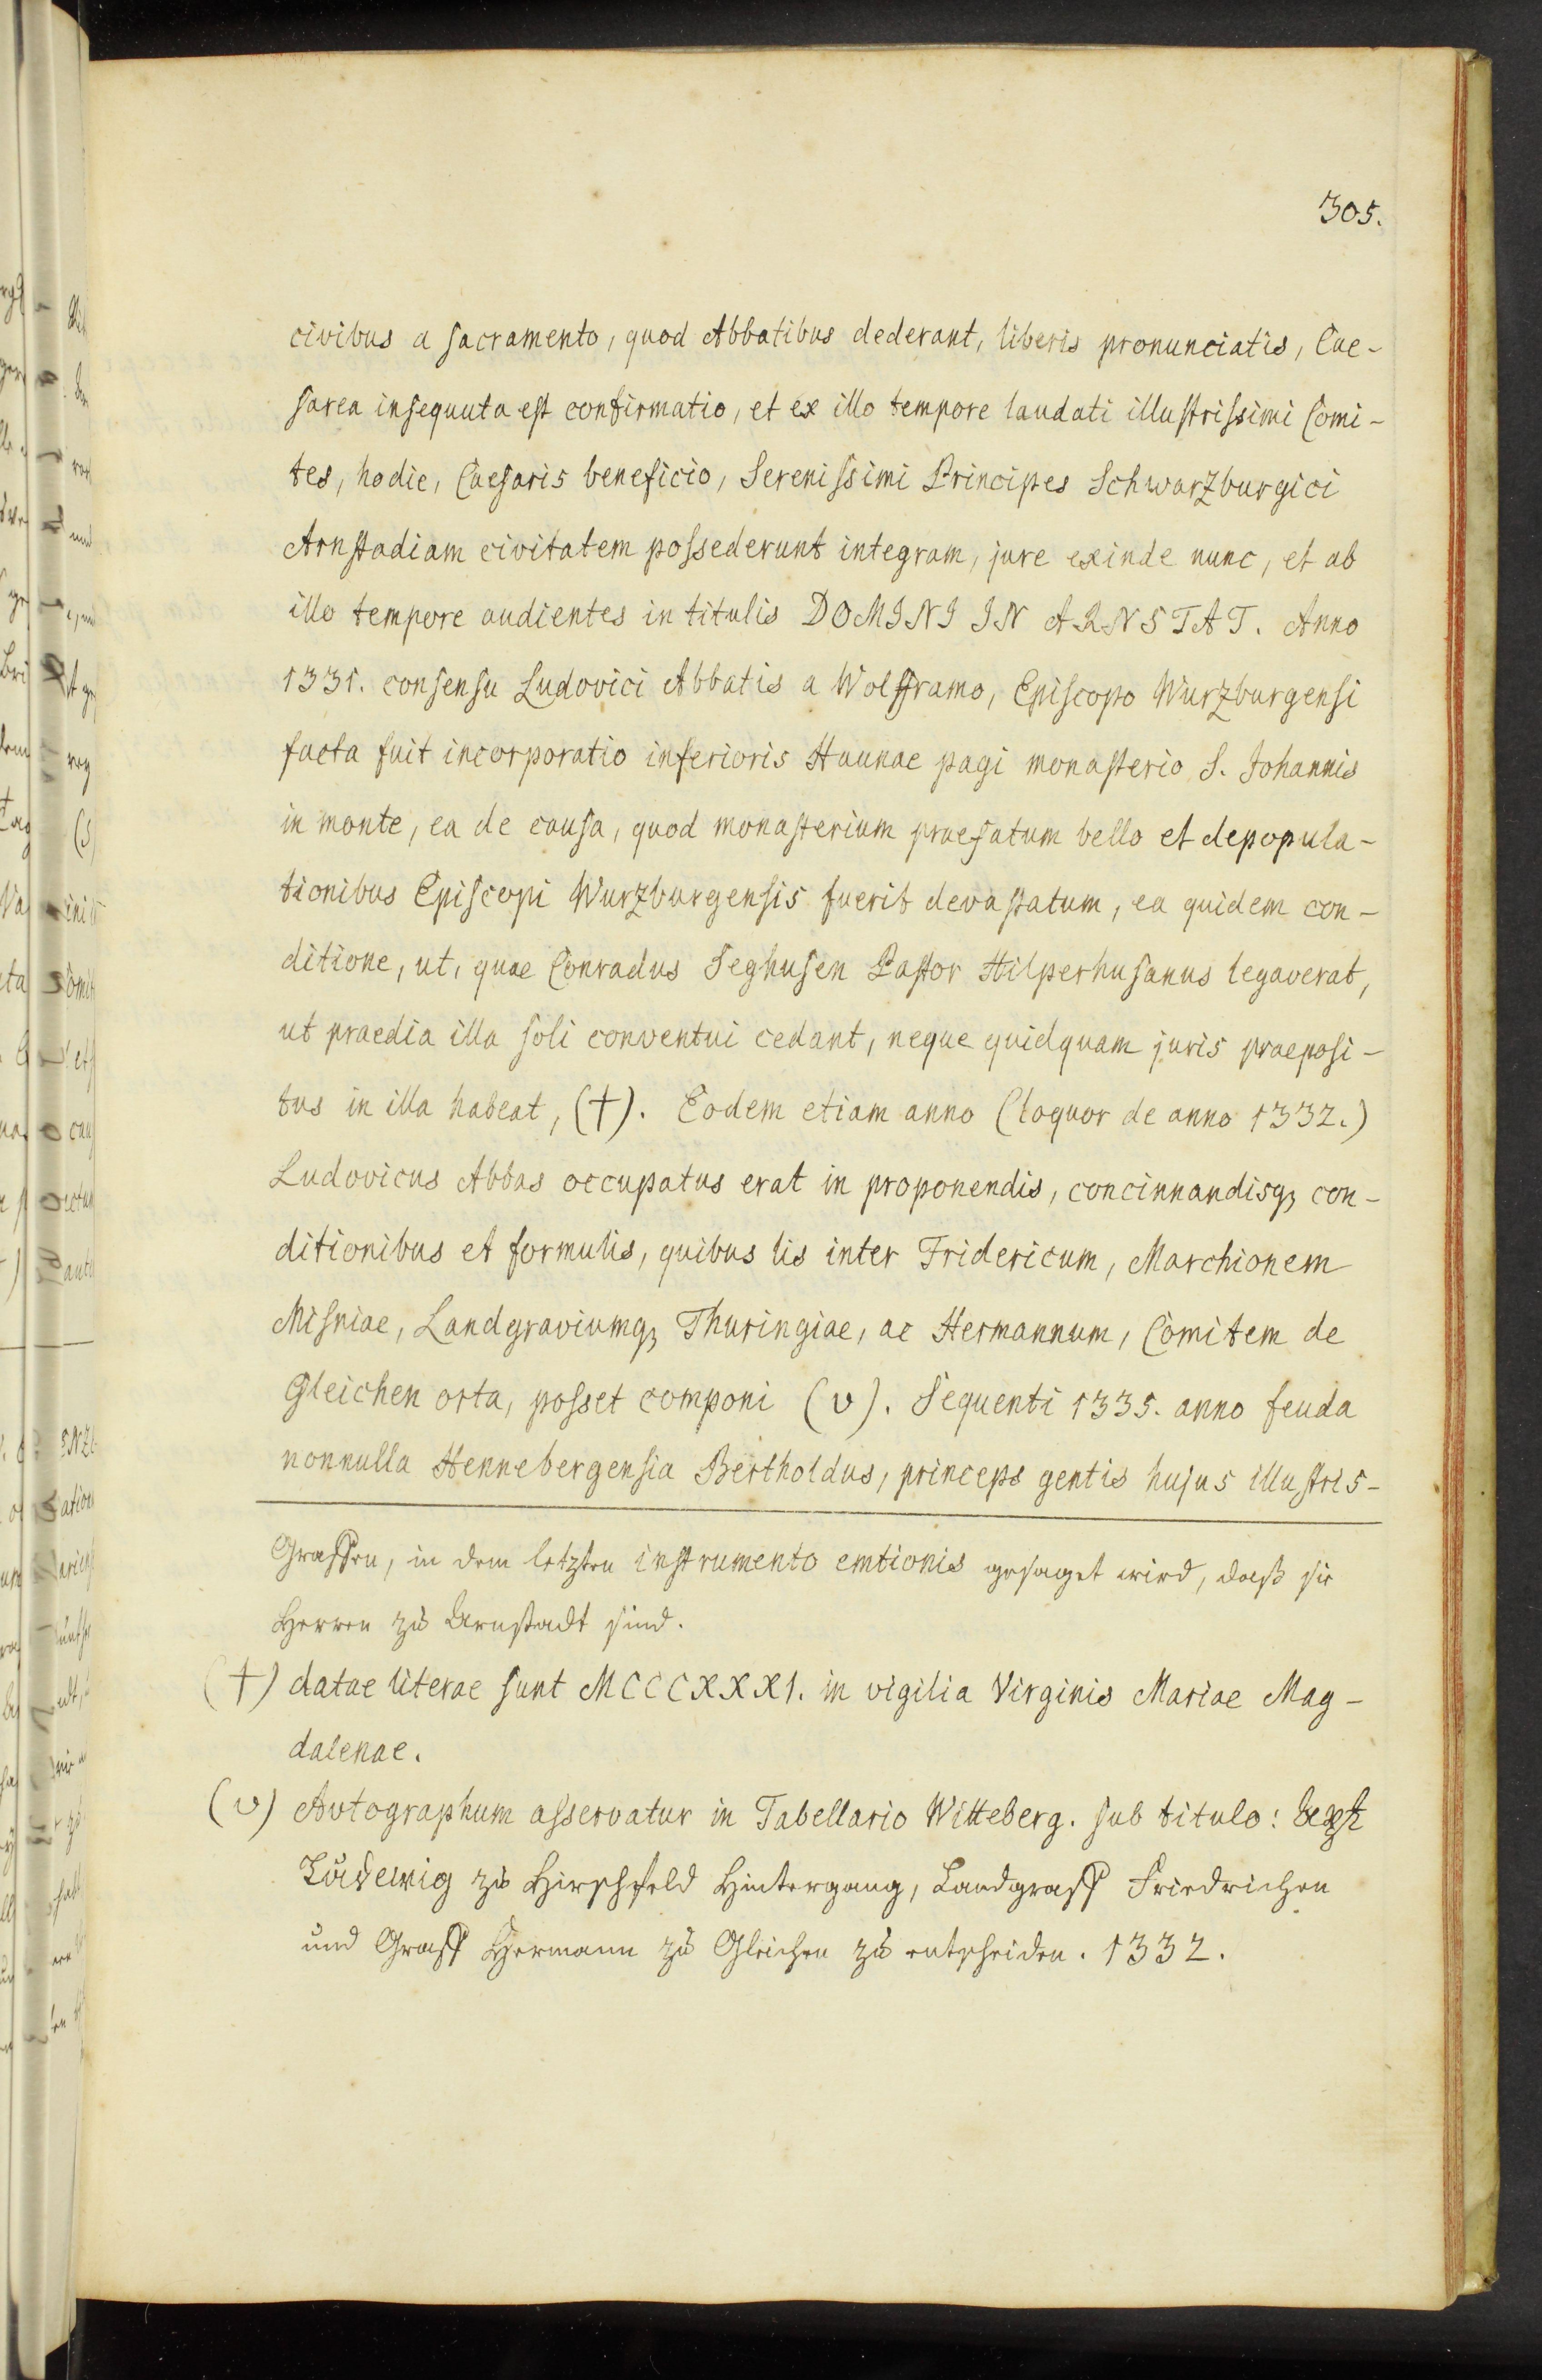 305.
civibus a sacramento, quod Abbatibus dederant, liberis pronunciatis, Cae-
sarea insequuta est confirmatio, et ex illo tempore laudati illustrissimi Comi-
tes, hodie, Caesaris beneficio, Serenissimi Principes Schwarzburgici
Arnstadiam civitatem possederunt integram, jure exinde nunc, et ab
illo tempore audientes in titulis DOMINI IN ARNSTAT. Anno
1331. consensu Ludovici Abbatis a Wolframo, Episcopo Wurzburgensi
facta fuit incorporatio inferioris Haunae pagi monasterio S. Johannis
in monte, ea de causa, quod monasterium praefatum bello et depopula-
tionibus Episcopi Wurzburgensis fuerit devastatum, ea quidem con-
ditione, ut, quae Conradus Seghusen Pastor Hilperhusanus legaverat,
ut praedia illa soli conventui cedant, neque quidquam juris praeposi-
tus in illa habeat, (†). Eodem etiam anno (loquor de anno 1332.)
Ludovicus Abbas occupatus erat in proponendis, concinnandisq3 con-
ditionibus et formulis, quibus lis inter Fridericum, Marchionem
Misniae, Landgraviumq3 Thuringiae, ac Hermannum, Comitem de
Gleichen orta, posset componi (v). Sequenti 1335. anno feuda
nonnulla Hennebergensia Bertholdus, princeps gentis hujus illustris-
Graffen, in dem letzten instrumento emtionis gesaget wird, daß sie
Herren zu Arnstadt sind.
(†) datae literae sunt MCCCXXXI. in vigilia Virginis Mariae Mag-
dalenae.
(v) Autographum asservatur in Tabellario Witteberg. sub titulo:
Ludewig zu Hirschfeld Hintergang, Landgraff Friedrichen
und Graff Hermann zu Gleichen zu entscheiden. 1332.